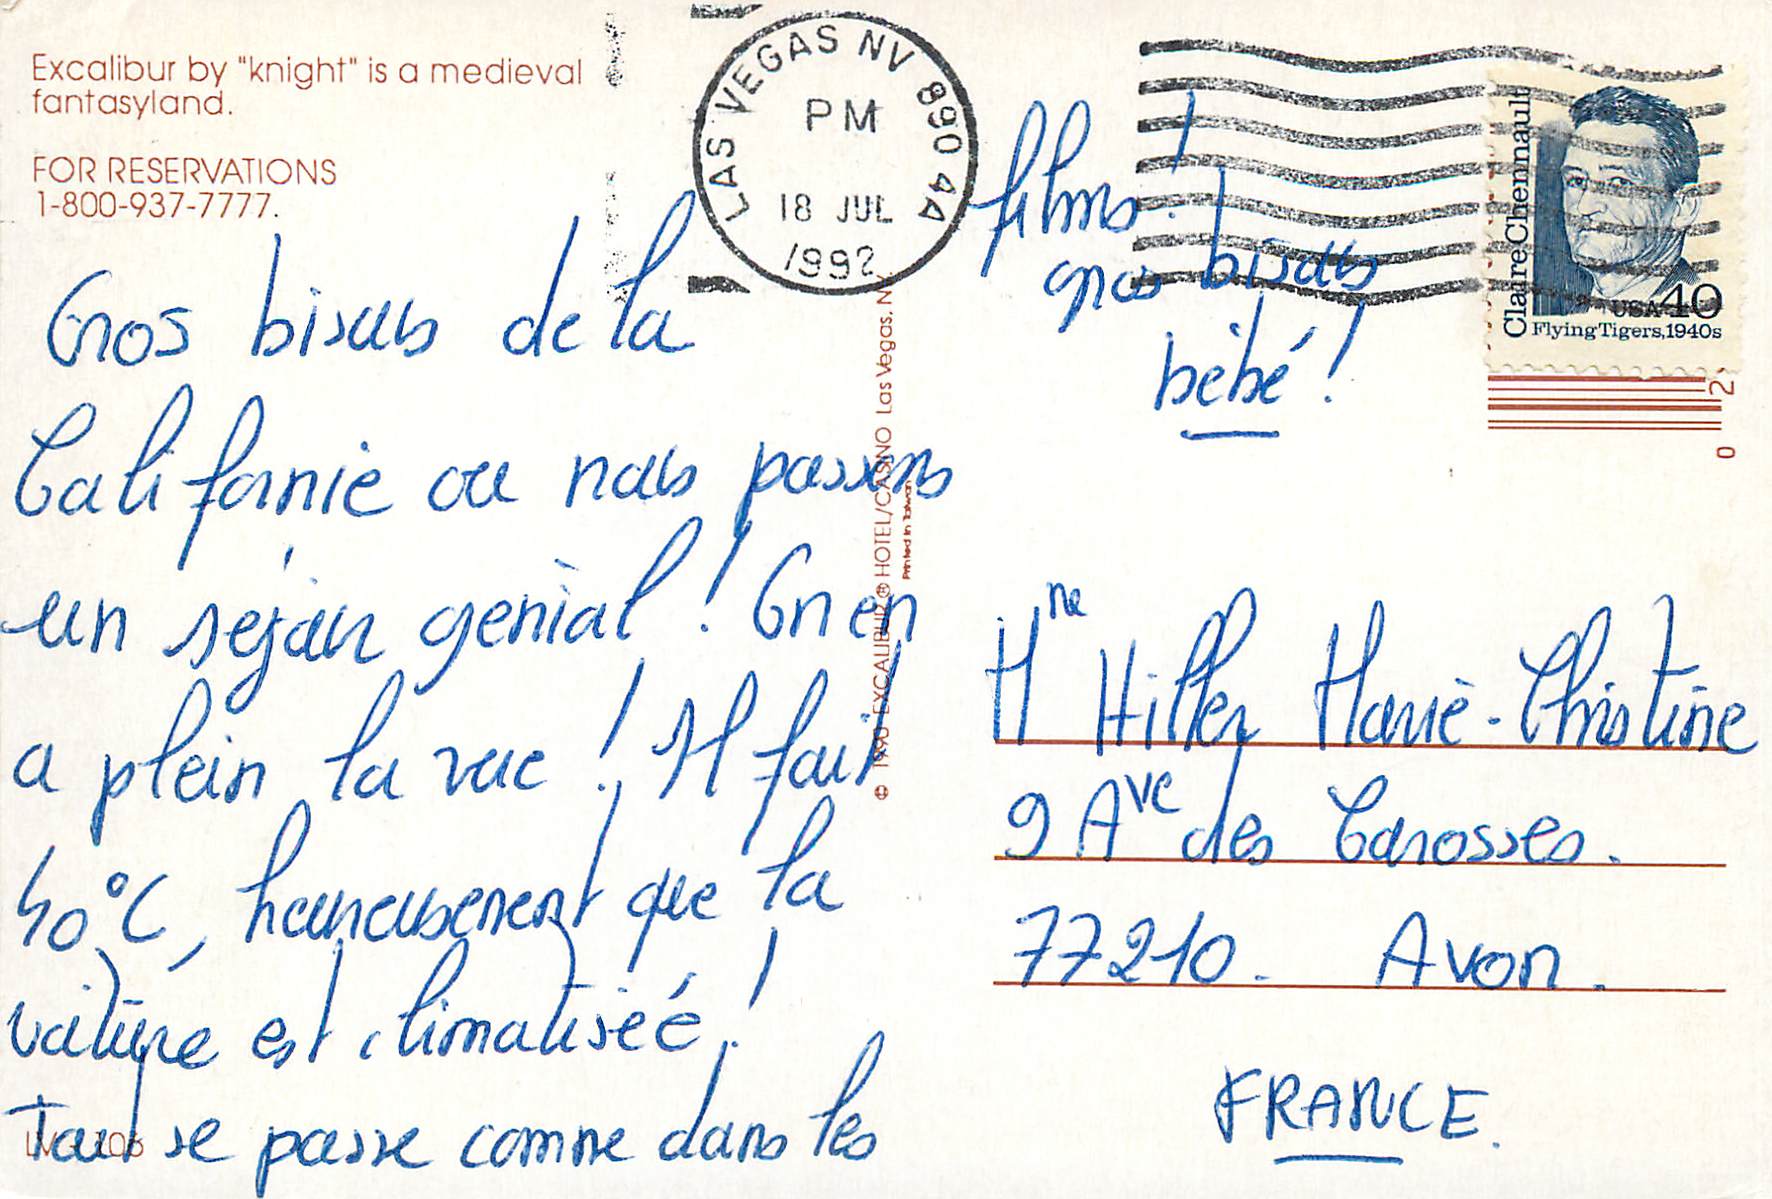 Excalibur by "knight" is a medieval
fantasyland.
FOR RESERVATIONS
1-800-937-7777.
LAS VEGAS NV 890 44
PM
18 JUL
1992
Claire Chennault
USA 40
Flying Tigers, 1940s
Gros bisous de la
Californie ou nous passons
un séjour génial ! On en
a plein la vue ! Il fait
40°C, heureusement que la
voiture est climatisée !
Tout se passe comme dans les
films !
gros bisous !
bébé !
© 1990 EXCALIBUR® HOTEL/CASINO Las Vegas, N
Printed in Taiwan
Mme Hiller Marie-Christine
9 Ave des Carosses.
77210. Avon.
FRANCE.
0 2